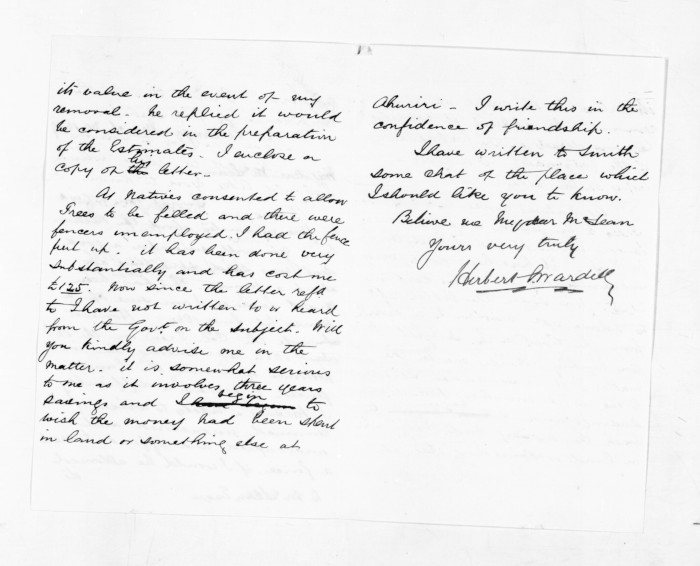 its value in the event of my
removal. he replied it would
be considered in the preparation
of the Estimates. I enclose a
copy of his letter.
As Natives consented to allow
Trees to be felled and there were
fencers unemployed. I had the fence
put up. it has been done very
substantially and has cost me
£125. Now since the letter refd.
to I have not written to or heard
from the Govt. on the subject. Will
you kindly advise me in the
matter. it is somewhat serious
to me as it involves three years
savings and I begin to
wish the money had been spent
in land or something else at
Ahuriri - I write this in the
confidence of friendship.
I have written to Smith
some chat of the place which
I should like you to know.
Believe me My dear McLean
Yours very truly
Herbert S. Wardell